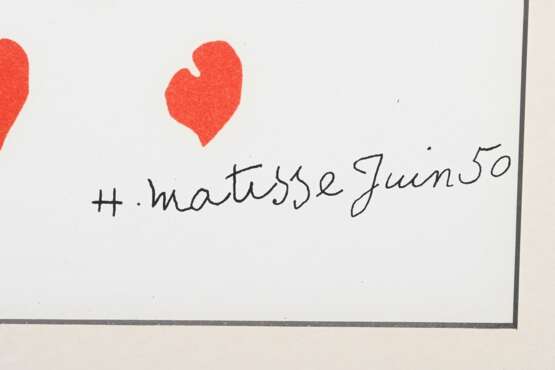 H. matisse Juin 50